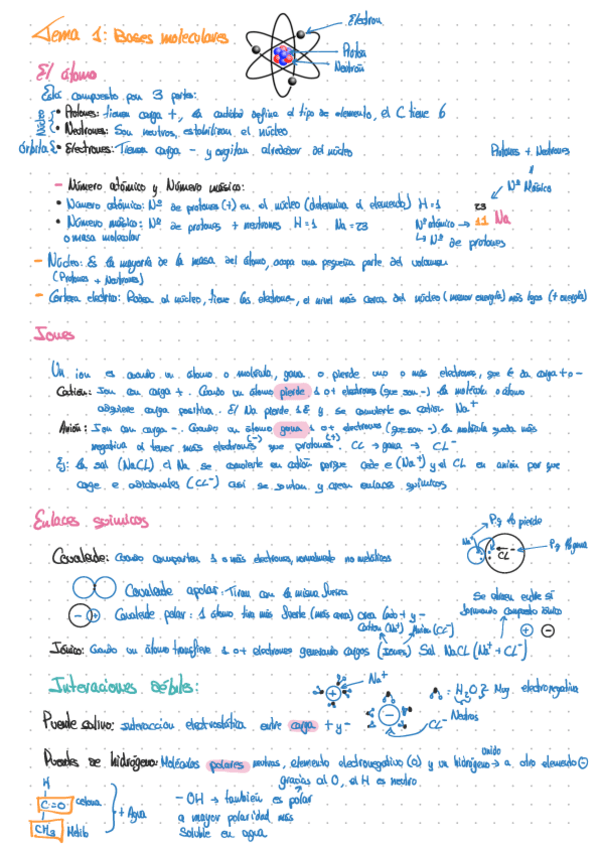 Tema 1: Bases moleculares
Electron
Proton
Neutron
El átomo
Está compuesto por 3 partes:
Núcleo
• Protones: tienen carga +, la cantidad define el tipo de elemento, el C tiene 6
• Neutrones: Son neutros, estabilizan el núcleo
órbita
• Electrones: Tienen carga - y orgitan alrededor del núcleo
Protones + Neutrones
- Número atómico y Número másico:
Nº Másico
• Número atómico: Nº de protones (+) en el núcleo (determina el elemento) H=1
• Número másico: Nº de protones + neutrones H=1 Na=23
o masa molecular
23
Nº atómico → 11 Na
↳ Nº de protones
- Núcleo: Es la mayoría de la masa del átomo, ocupa una pequeña parte del volumen
(Protones + Neutrones)
- Corteza electrio: Rodea al núcleo, tiene los electrones, el nivel más cerca del núcleo (menor energía) más lejos (+ energía)
Iones
Un ion es cuando un átomo o molécula, gana o pierde uno o más electrones, que le da carga + o -
Catión: Ion con carga +. Cuando un átomo pierde 1 o + electrones (que son -) la molécula o átomo
adquiere carga positiva. El Na pierde 1e y se convierte en catión Na+
Anión: Ion con carga -. Cuando un átomo gana 1 o + electrones (que son -) la molécula queda más
negativa al tener más electrones (-) que protones (+). CL → gana → CL-
Ej: la sal (NaCL) el Na se convierte en catión porque cede e (Na+) y el CL en anión por que
coge e adicionales (CL-) así se juntan y crean enlaces químicos
Enlaces químicos
Na+
CL
Covalente: Cuando comparten 1 o más electrones, normalmente no metálicos
Covalente apolar: Tiran con la misma fuerza
Covalente polar: 1 átomo tira más fuerte (más area) crea lado + y -
Se atraen entre sí
formando compuesto iónico
+ -
Catión (Na+) Anión (CL-)
Iónico: Cuando un átomo transfiere 1 o + electrones generando cargas (Iones) Sal NaCL (Na+ + CL-)
Interaciones débiles:
Na+
: H2O
Neg. electronegativa
Puente salino: interaccion electrostática entre carga + y -
CL-
Neutros
Puentes de hidrógeno: Moléculas polares neutras, elemento electronegativo (O) y un hidrógeno unido → a otro elemento -
gracias al O, el H es neutro
H
C=O cetona
CH3 Metilo
+ Agua
- OH → también es polar
a mayor polaridad más
soluble en agua